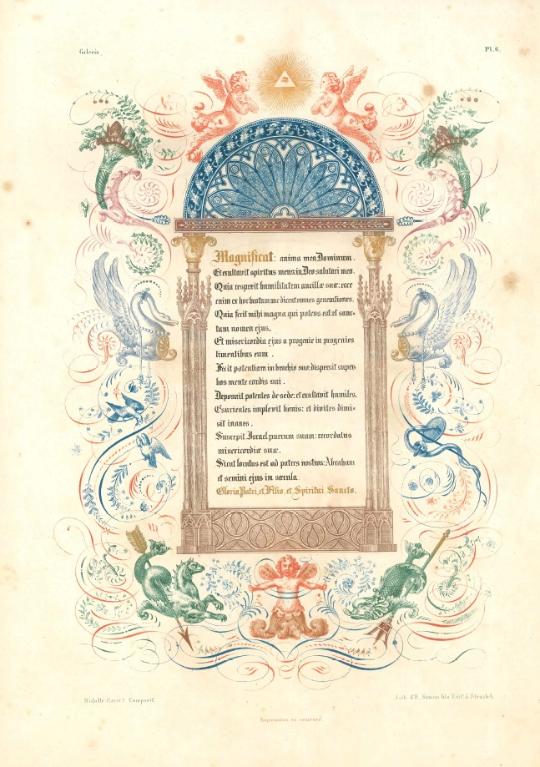 Pl. 6.
Magnificat: anima mea Dominum.
Et exultavit spiritus meus in Deo salutari meo.
Quia respexit humilitatem ancillæ suæ: ecce
enim ex hoc beatam me dicent omnes generationes.
Quia fecit mihi magna qui potens est et sanc-
tum nomen ejus.
Et misericordia ejus a progenie in progenies
timentibus eum.
Fecit potentiam in brachio suo: dispersit super-
bos mente cordis sui.
Deposuit potentes de sede: et exaltavit humiles.
Esurientes implevit bonis: et divites dimi-
sit inanes.
Suscepit Israel puerum suum: recordatus
misericordiæ suæ.
Sicut locutus est ad patres nostros: Abraham
et semini ejus in sæcula.
Gloria Patri, et Filio, et Spiritui Sancto.
Midolle Composit.
Lith. d'E. Simon fils Edit. à Strasbg.
Impression en couleur